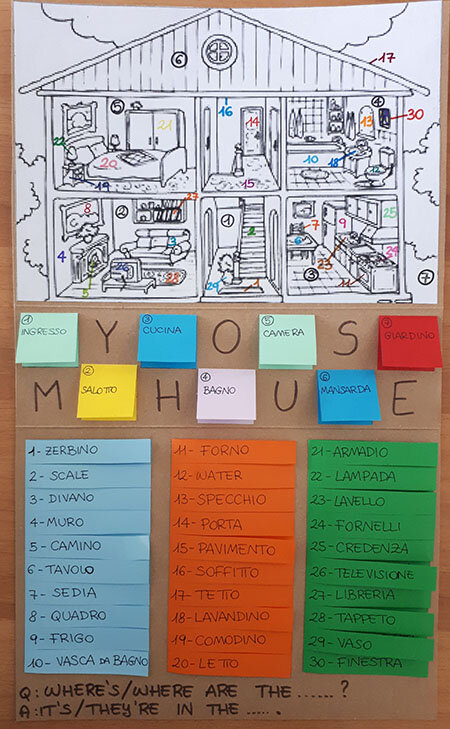 ⑥ 17
⑤ 21 16 14 ④ 30
22 13
20 10 18 12
19 15
27 ① 9 25
8 ② 7
4 3 2 6 23 24
26 28 ③ 11 ⑦
5 29 1
① INGRESSO Y ③ CUCINA O ⑤ CAMERA S ⑦ GIARDINO
M ② SALOTTO H ④ BAGNO U ⑥ MANSARDA E
1- ZERBINO
2- SCALE
3- DIVANO
4- MURO
5- CAMINO
6- TAVOLO
7- SEDIA
8- QUADRO
9- FRIGO
10- VASCA DA BAGNO
11- FORNO
12- WATER
13- SPECCHIO
14- PORTA
15- PAVIMENTO
16- SOFFITTO
17- TETTO
18- LAVANDINO
19- COMODINO
20- LETTO
21- ARMADIO
22- LAMPADA
23- LAVELLO
24- FORNELLI
25- CREDENZA
26- TELEVISIONE
27- LIBRERIA
28- TAPPETO
29- VASO
30- FINESTRA
Q: WHERE'S/WHERE ARE THE ......?
A: IT'S/THEY'RE IN THE ......